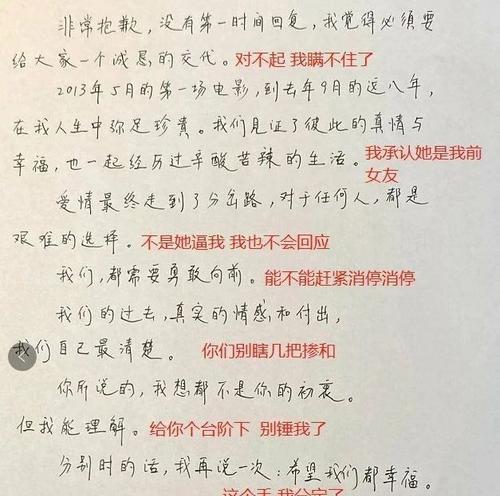 非常抱歉，没有第一时间回复，我觉得必须要
给大家一个诚恳的交代。对不起 我瞒不住了
2013年5月的第一场电影，到去年9月的近八年，
在我人生中弥足珍贵。我们见证了彼此的真情与
幸福，也一起经历过辛酸苦辣的生活。我承认她是我前
女友
爱情最终走到了分岔路，对于任何人，都是
艰难的选择。不是她逼我 我也不会回应
我们，都需要勇敢向前。能不能赶紧消停消停
我们的过去，真实的情感和付出，
我们自己最清楚。 你们别瞎几把掺和
你所说的，我想都不是你的初衷。
但我能理解。给你个台阶下 别锤我了
分别时的话，我再说一次：希望我们都幸福。
这个手 我分定了